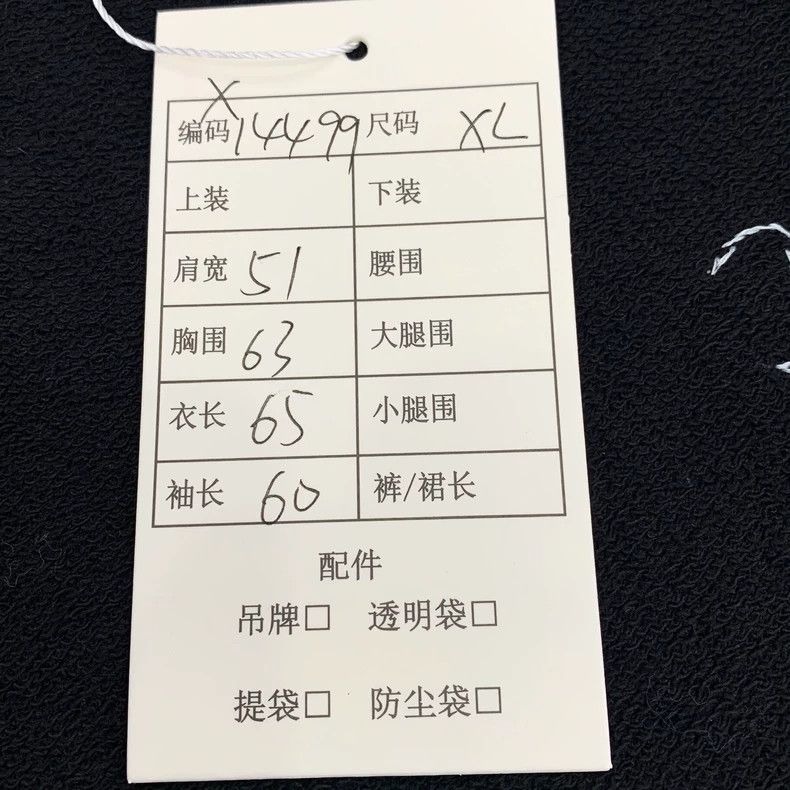 X
编码 14499 尺码 XL
上装 下装
肩宽 51 腰围
胸围 63 大腿围
衣长 65 小腿围
袖长 60 裤/裙长
配件
吊牌□ 透明袋□
提袋□ 防尘袋□